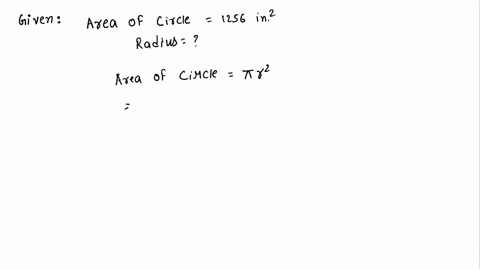 Given: Area of Circle = 1256 in.²
Radius = ?
Area of Circle = πr²
=